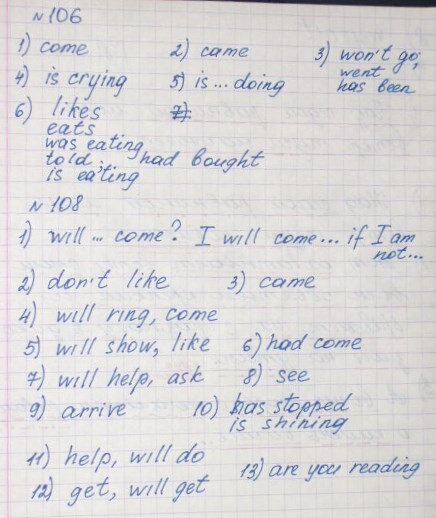 №106
1) come 2) came 3) won't go,
went
4) is crying 5) is... doing has been
6) likes
eats
was eating
told, had bought
is eating
№108
1) will... come? I will come... if I am
not...
2) don't like 3) came
4) will ring, come
5) will show, like 6) had come
7) will help, ask 8) see
9) arrive 10) has stopped
is shining
11) help, will do
12) get, will get 13) are you reading